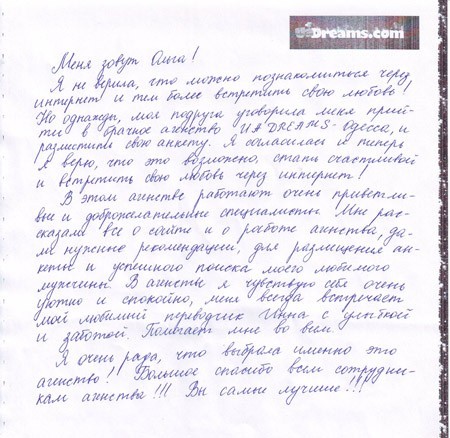 UADreams.com
Меня зовут Ольга!
Я не верила, что можно познакомиться через
интернет и тем более встретить свою любовь!
Но однажды, моя подруга уговорила меня прий-
ти в брачное агенство UADREAMS-Одесса, и
разместить свою анкету. Я согласилась и теперь
я верю, что это возможно, стать счастливой
и встретить свою любовь через интернет!
В этом агенстве работают очень приветли-
вые и доброжелательные специалисты. Мне рас-
сказали все о сайте и о работе агенства, да-
ли нужные рекомендации, для размещения ан-
кеты и успешного поиска моего любимого
мужчины. В агенстве я чувствую себя очень
уютно и спокойно, меня всегда встречает
мой любимый переводчик Инна с улыбкой
и заботой. Помогает мне во всем.
Я очень рада, что выбрала именно это
агенство! Большое спасибо всем сотрудни-
кам агенства!!! Вы самые лучшие!!!